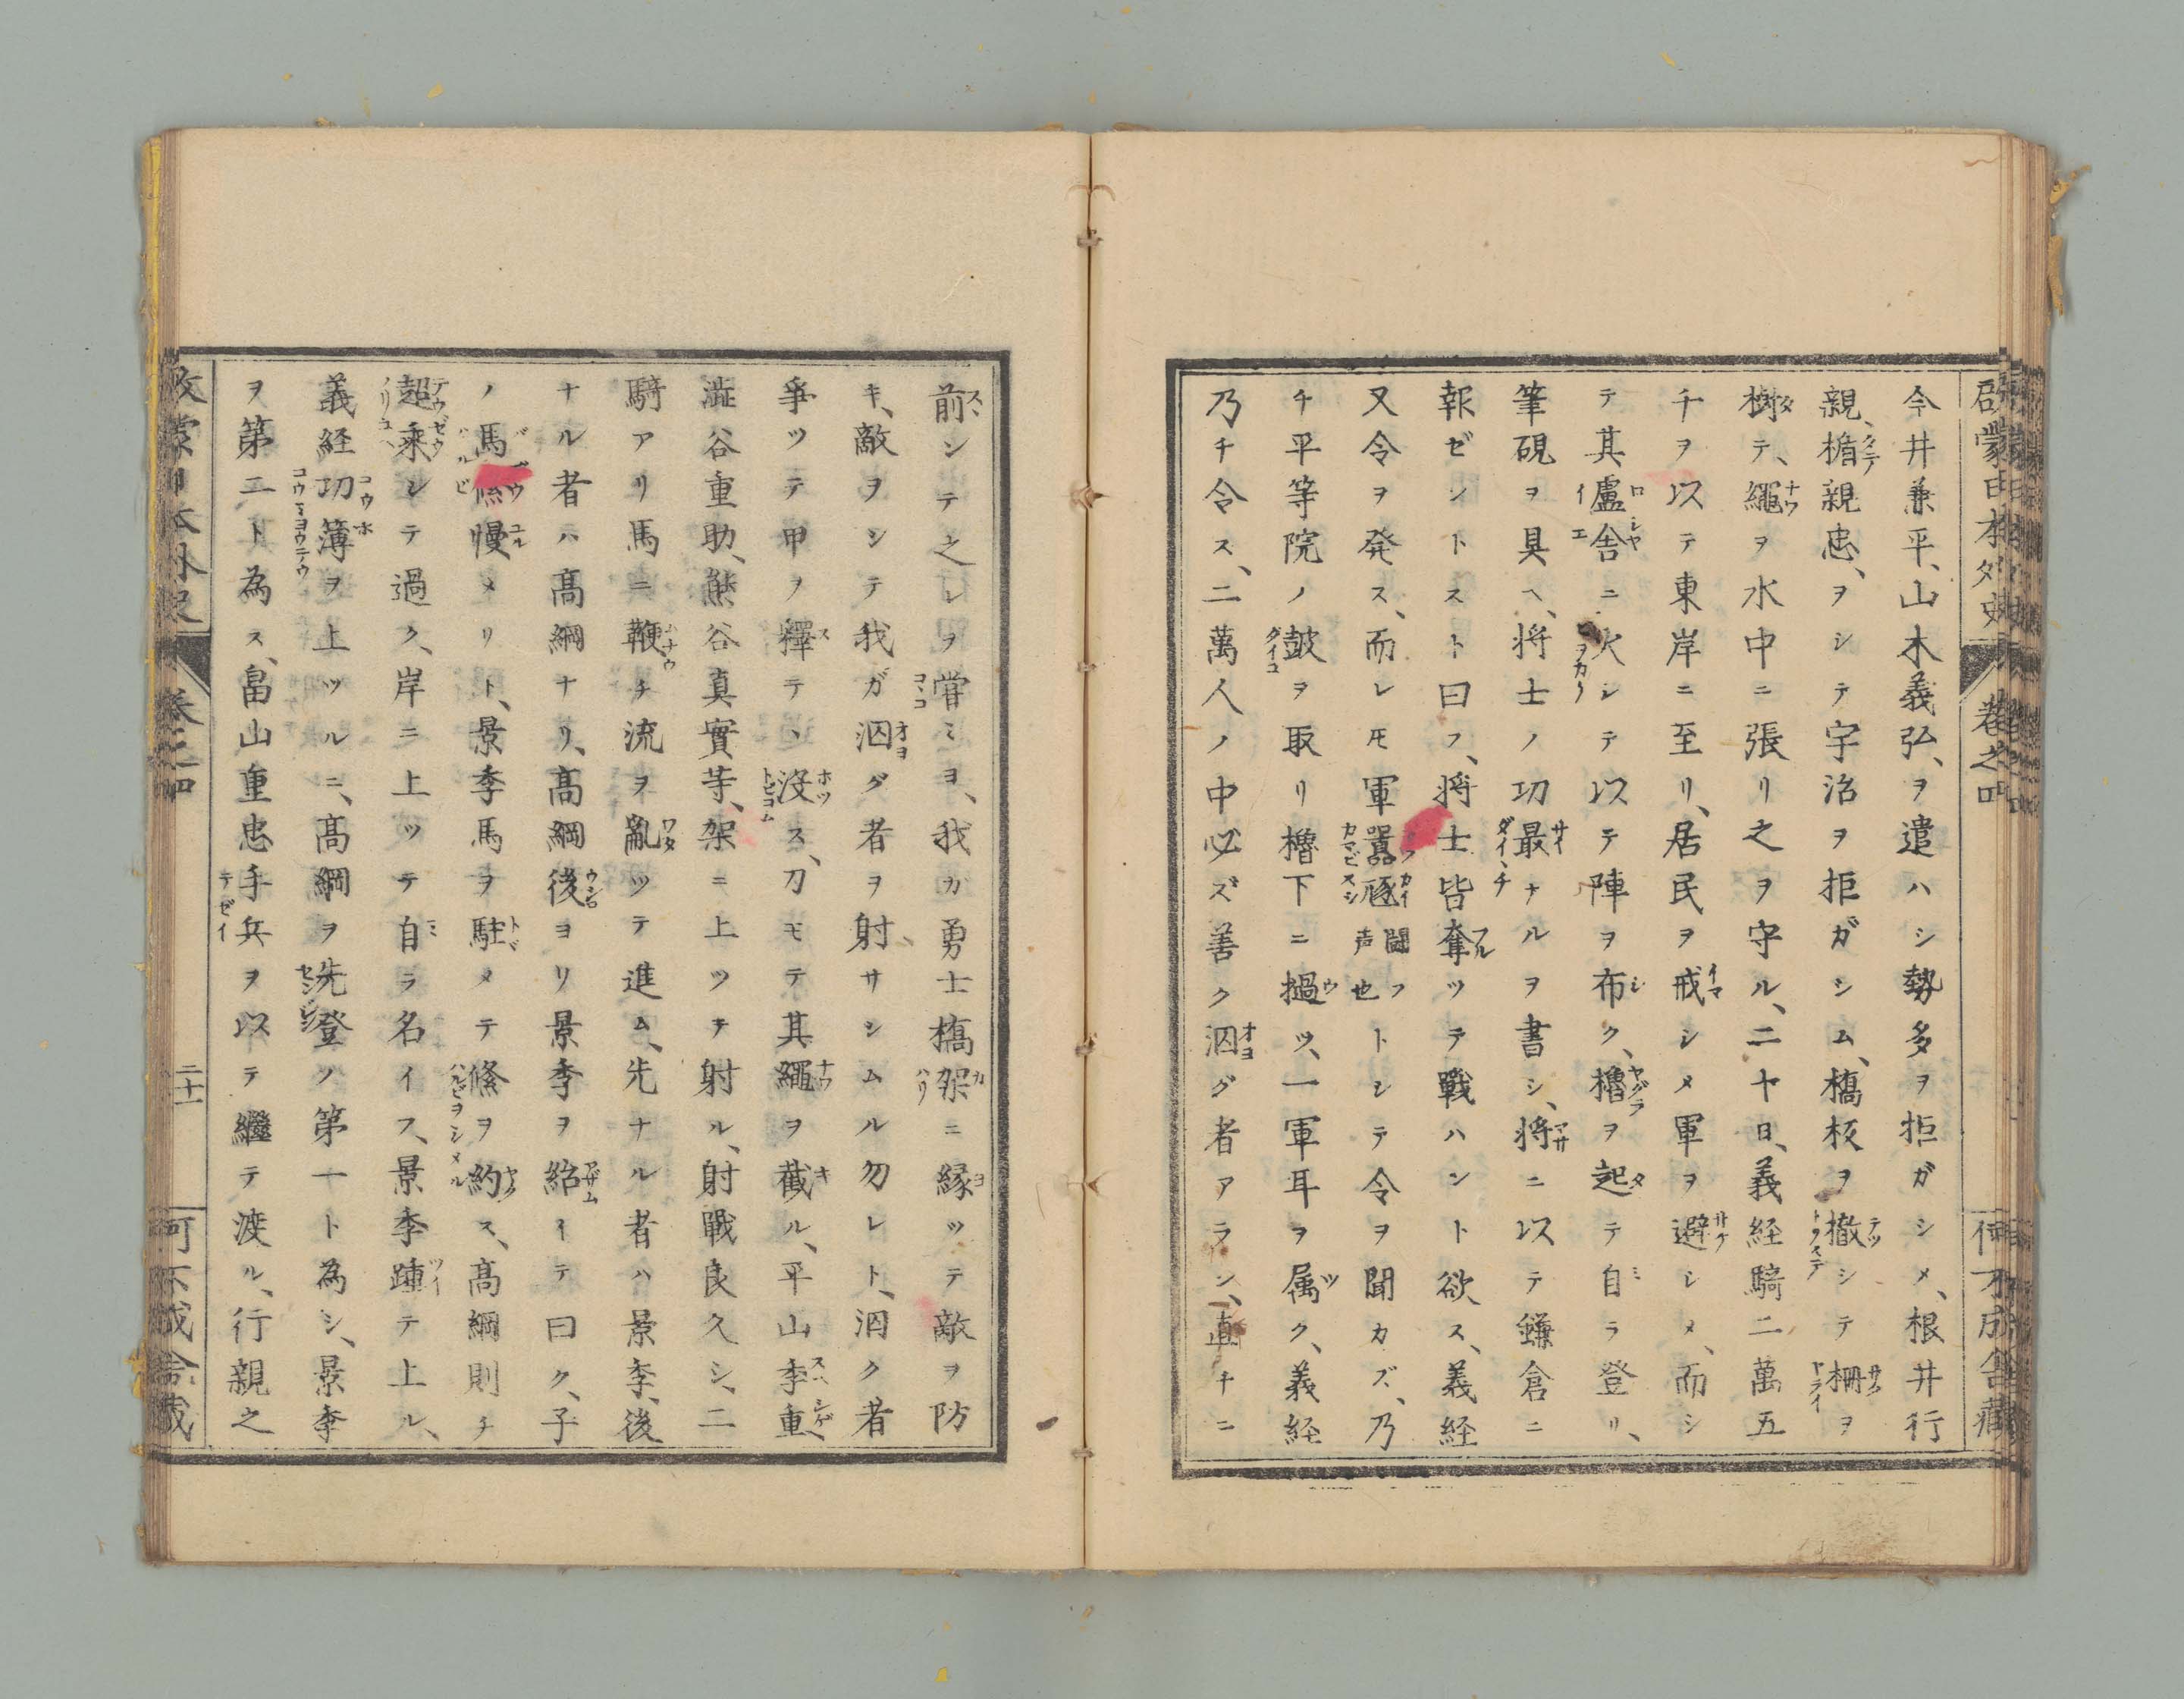 啓蒙日本外史 巻之四 何不成舎蔵
今井兼平、山木義弘、ヲ遣ハシ勢多ヲ拒ガシメ、根井行
親、楯親忠、ヲシテ宇治ヲ拒ガシム、橋板ヲ撤シテ柵ヲ
樹テ、繩ヲ水中ニ張リ之ヲ守ル、二十日、義経騎二萬五
千ヲ以テ東岸ニ至リ、居民ヲ戒シメ軍ヲ避シメ、而シ
テ其盧舎ニ火シテ以テ陣ヲ布ク、櫓ヲ起テ自ラ登リ、
筆硯ヲ具ヘ、将士ノ功最ナルヲ書シ、将ニ以テ鎌倉ニ
報ゼントスト曰フ、将士皆奮ツテ戰ハント欲ス、義経
又令ヲ発ス、而レ𪜈軍囂豗闘声也トシテ令ヲ聞カズ、乃
チ平等院ノ鼓ヲ取リ櫓下ニ撾ツ、一軍耳ヲ属ク、義経
乃チ令ス、二萬人ノ中必ズ善ク泅グ者アラン、直チニ
前ンテ之レヲ甞ミヨ、我ガ勇士橋架ニ縁ツテ敵ヲ防
キ、敵ヲシテ我ガ泅グ者ヲ射サシムル勿レト、泅ク者
爭ツテ甲ヲ釋テ、没ス、刀モテ其繩ヲ截ル、平山季重、
澁谷重助、熊谷真實等、架ニ上ツテ射ル、射戰良久シ、二
騎アリ馬ニ鞭チ流ヲ亂ツテ進ム、先ナル者ハ景季、後
ナル者ハ高綱ナリ、高綱後ヨリ景季ヲ紿イテ曰ク、子
ノ馬絛慢メリト、景季馬ヲ駐メテ絛ヲ約ス、高綱則チ
超乗シテ過ク、岸ニ上ツテ自ラ名イフ、景季踵テ上ル、
義経功簿ヲ上ツルニ、高綱ヲ先登ノ第一ト為シ、景季
ヲ第二ト為ス、畠山重忠手兵ヲ以テ繼テ渡ル、行親之
啓蒙日本外史 巻之四 二十一 何不成舎蔵